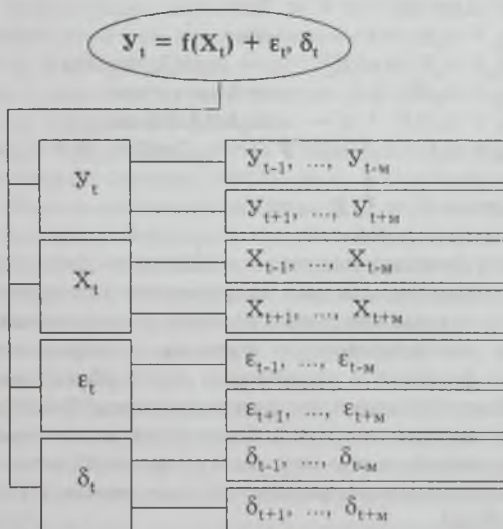 У_t = f(X_t) + ε_t, δ_t
У_t
У_{t-1}, ..., У_{t-м}
У_{t+1}, ..., У_{t+м}
X_t
X_{t-1}, ..., X_{t-м}
X_{t+1}, ..., X_{t+м}
ε_t
ε_{t-1}, ... ε_{t-м}
ε_{t+1}, ..., ε_{t+м}
δ_t
δ_{t-1}, ... δ_{t-м}
δ_{t+1}, ..., δ_{t+м}